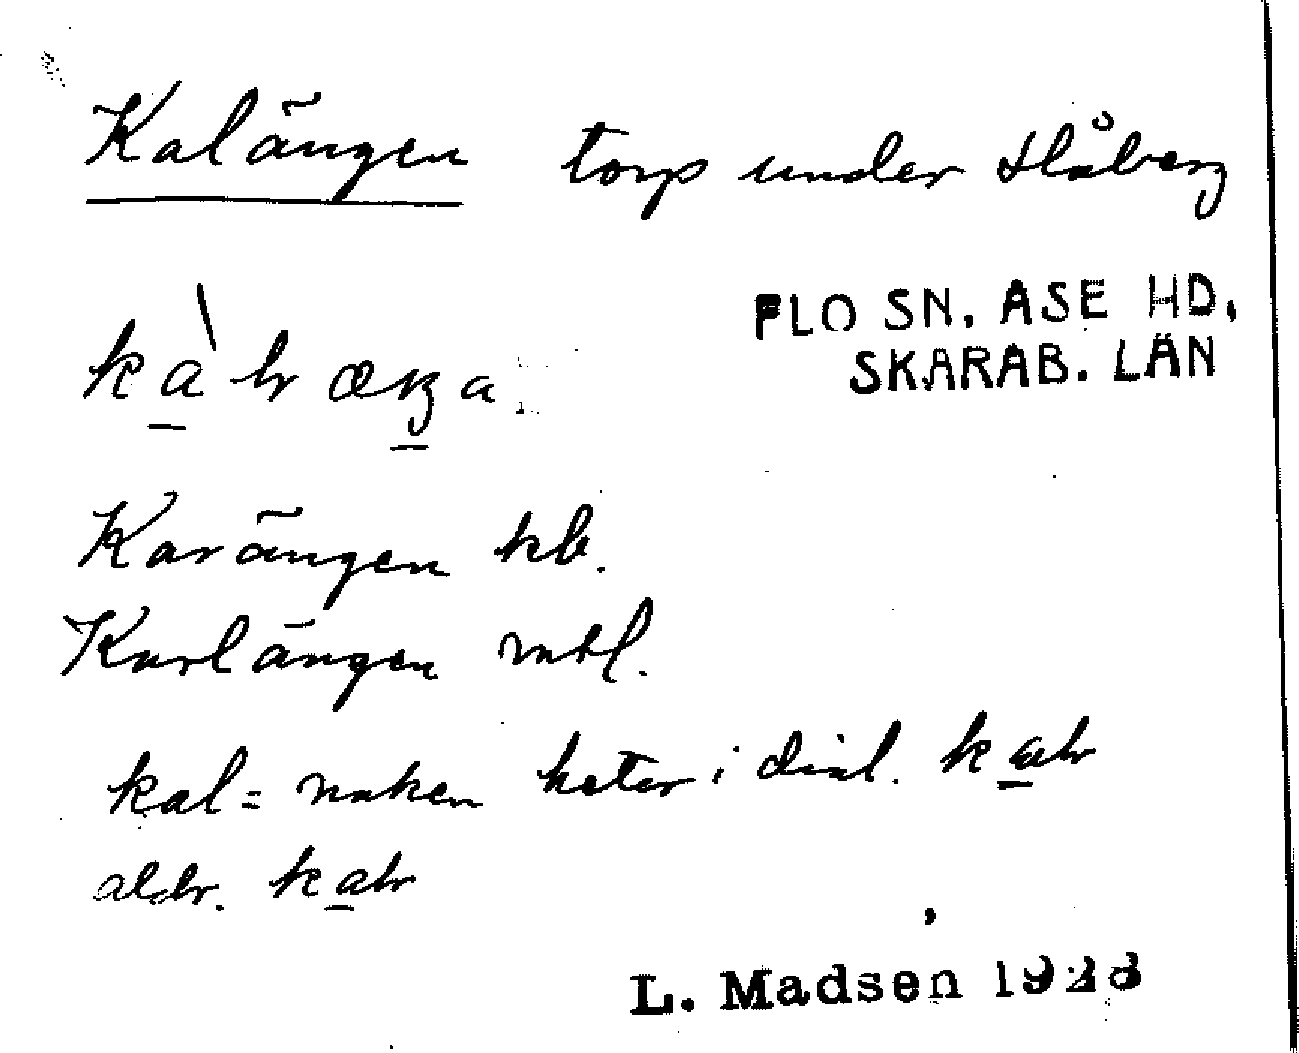 Kalängen torp under Håberg
FLO SN. ÅSE HD,
SKARAB. LÄN
Karängen kb.
Karlängen mtl.
kal = naken heter i dial.
aldr.
L. Madsen 1928